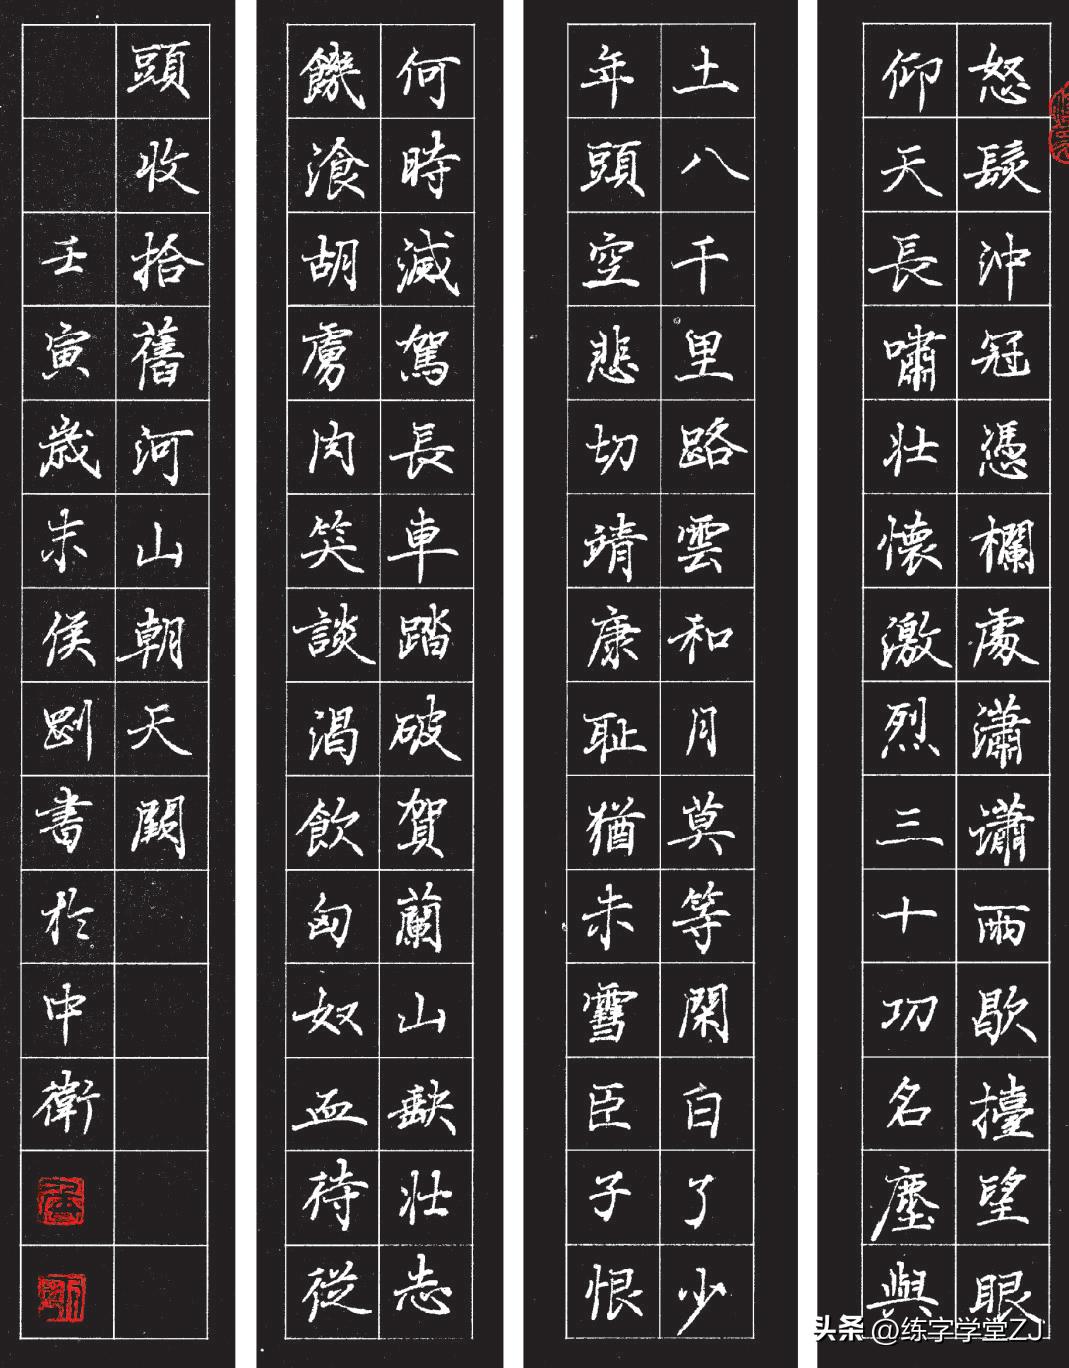 怒髮沖冠憑欄處瀟瀟雨歇擡望眼
仰天長嘯壯懷激烈三十功名塵與
土八千里路雲和月莫等閑白了少
年頭空悲切靖康耻猶未雪臣子恨
何時滅駕長車踏破賀蘭山缺壯志
饑湌胡虜肉笑談渴飲匈奴血待從
頭收拾舊河山朝天闕
壬寅歲末侯剛書於中衛
头条 @练字学堂ZJ